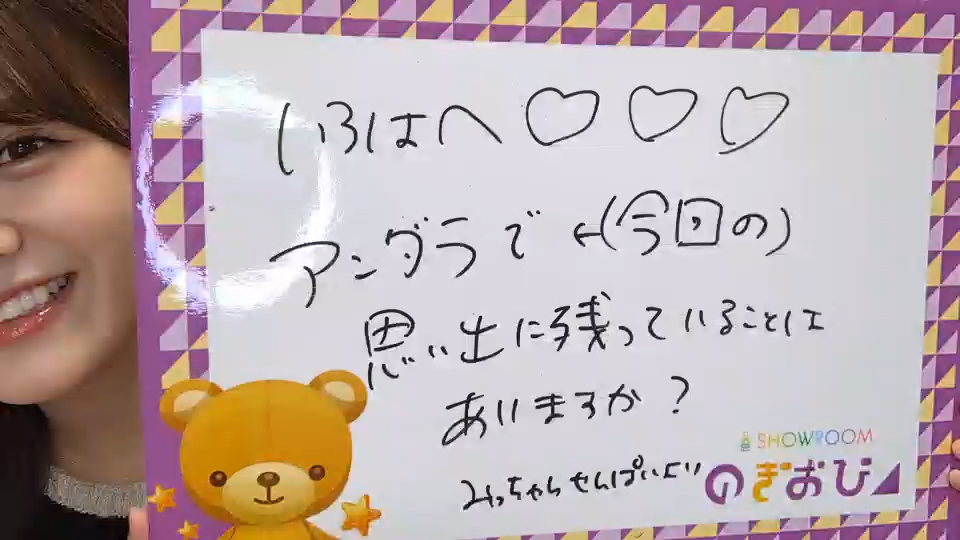 いろはへ♡♡♡
アンダラで ←(今回の)
思い出に残っていることは
ありますか？
みっちゃんせんぱいより
SHOWROOM
のぎおび